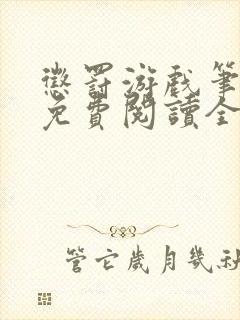 懲罰游戲筆
免費閱讀全
管它歲月幾